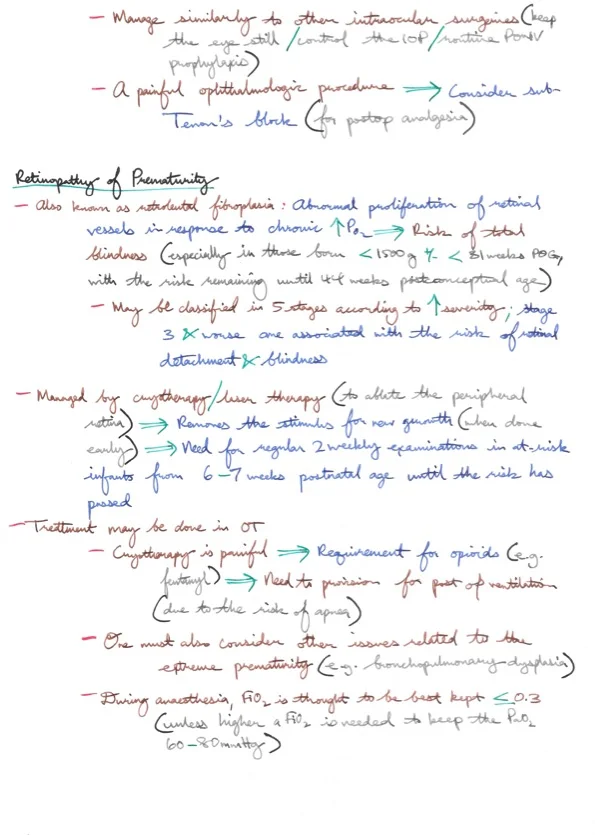 – Manage similarly to other intraocular surgeries (keep
the eye still / control the IOP / routine PONV
prophylaxis)
– A painful ophthalmologic procedure ⇒ Consider sub-
Tenon's block (for postop analgesia)
Retinopathy of Prematurity
– Also known as retrolental fibroplasia : Abnormal proliferation of retinal
vessels in response to chronic ↑ PO₂ ⇒ Risk of total
blindness (especially in those born < 1500g +/- < 31 weeks POG,
with the risk remaining until 44 weeks postconceptual age)
– May be classified in 5 stages according to ↑ severity; stage
3 & worse are associated with the risk of retinal
detachment & blindness
– Managed by cryotherapy / laser therapy (to ablate the peripheral
retina) ⇒ Removes the stimulus for new growth (when done
early) ⇒ Need for regular 2 weekly examinations in at-risk
infants from 6–7 weeks postnatal age until the risk has
passed
– Treatment may be done in OT
– Cryotherapy is painful ⇒ Requirement for opioids (e.g.
fentanyl) ⇒ Need to provision for post op ventilation
(due to the risk of apnea)
– One must also consider other issues related to the
extreme prematurity (e.g. bronchopulmonary dysplasia)
– During anaesthesia, FiO₂ is thought to be best kept ≤ 0.3
(unless higher a FiO₂ is needed to keep the PaO₂
60–80mmHg)